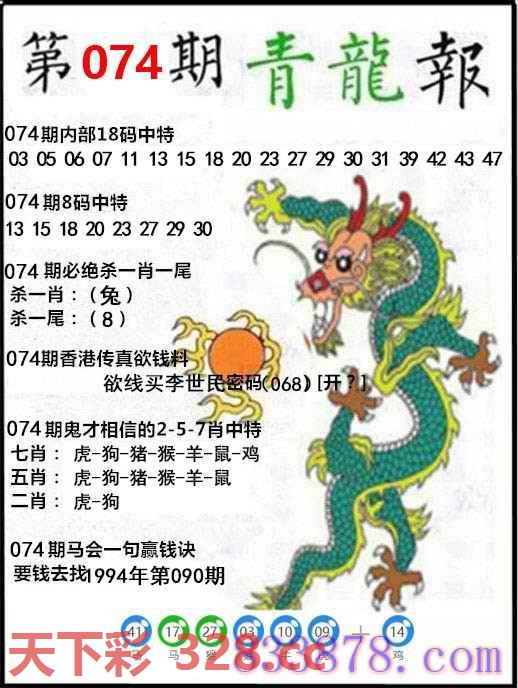 第074期青龍報
074期内部18码中特
03 05 06 07 11 13 15 18 20 23 27 29 30 31 39 42 43 47
074期8码中特
13 15 18 20 23 27 29 30
074期必绝杀一肖一尾
杀一肖：（兔）
杀一尾：（8）
074期香港传真欲钱料
欲线买李世民密码(068)[开？]
074期鬼才相信的2-5-7肖中特
七肖：虎-狗-猪-猴-羊-鼠-鸡
五肖：虎-狗-猪-猴-羊-鼠
二肖：虎-狗
074期马会一句赢钱诀
要钱去找1994年第090期
41 17 27 03 10 09 + 14
马 鸡
天下彩 32833.cc
833878.com